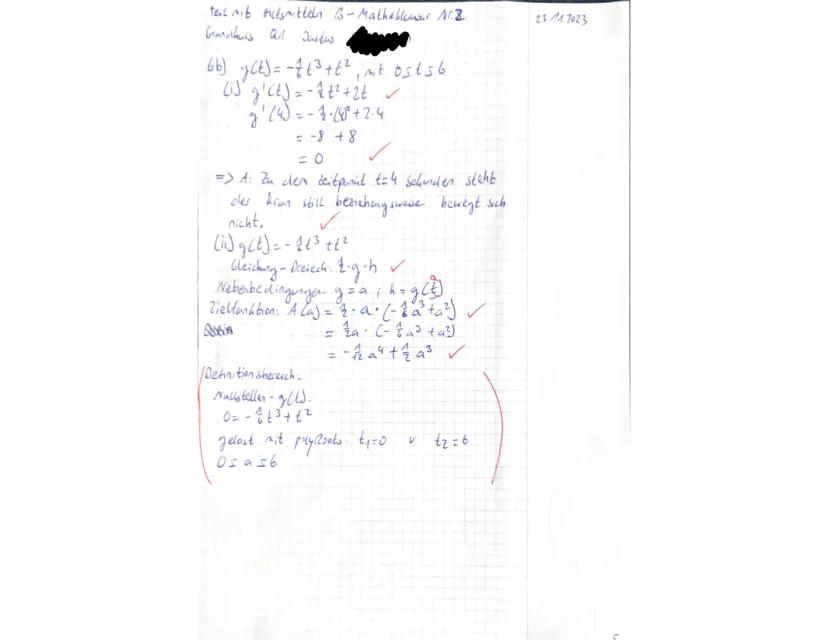 Teil mit Hilfsmitteln B-Matheklausur Nr.2
23.11.2023
Grundkurs Q1
6b) g(t) = -1/6 t³ + t², mit 0≤t≤6
(i) g'(t) = -1/2 t² + 2t
g'(4) = -1/2 · (4)² + 2·4
= -8 + 8
= 0
=> A: Zu dem Zeitpunkt t=4 Sekunden steht
der Kran still beziehungsweise bewegt sich
nicht.
(ii) g(t) = -1/6 t³ + t²
Gleichung-Dreieck: 1/2 · g · h
Nebenbedingungen: g = a ; h = g(t)
Zielfunktion: A(a) = 1/2 · a · (-1/6 a³ + a²)
= 1/2 a · (-1/6 a³ + a²)
= -1/12 a⁴ + 1/2 a³
Definitionsbereich:
Nullstellen - g(t):
0 = -1/6 t³ + t²
gelöst mit polyRoots: t₁=0 v t₂=6
0 ≤ a ≤ 6